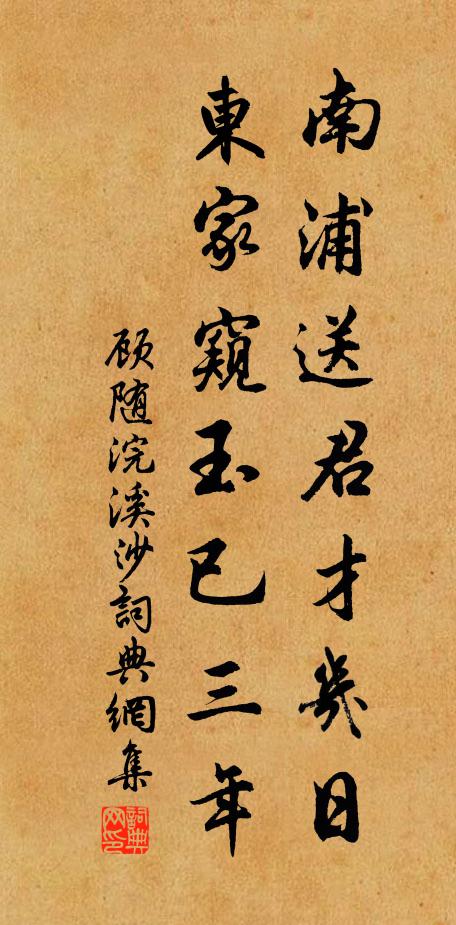 南浦送君才幾日
東家窺玉已三年
顾随浣溪沙詞典網集
詞典网印